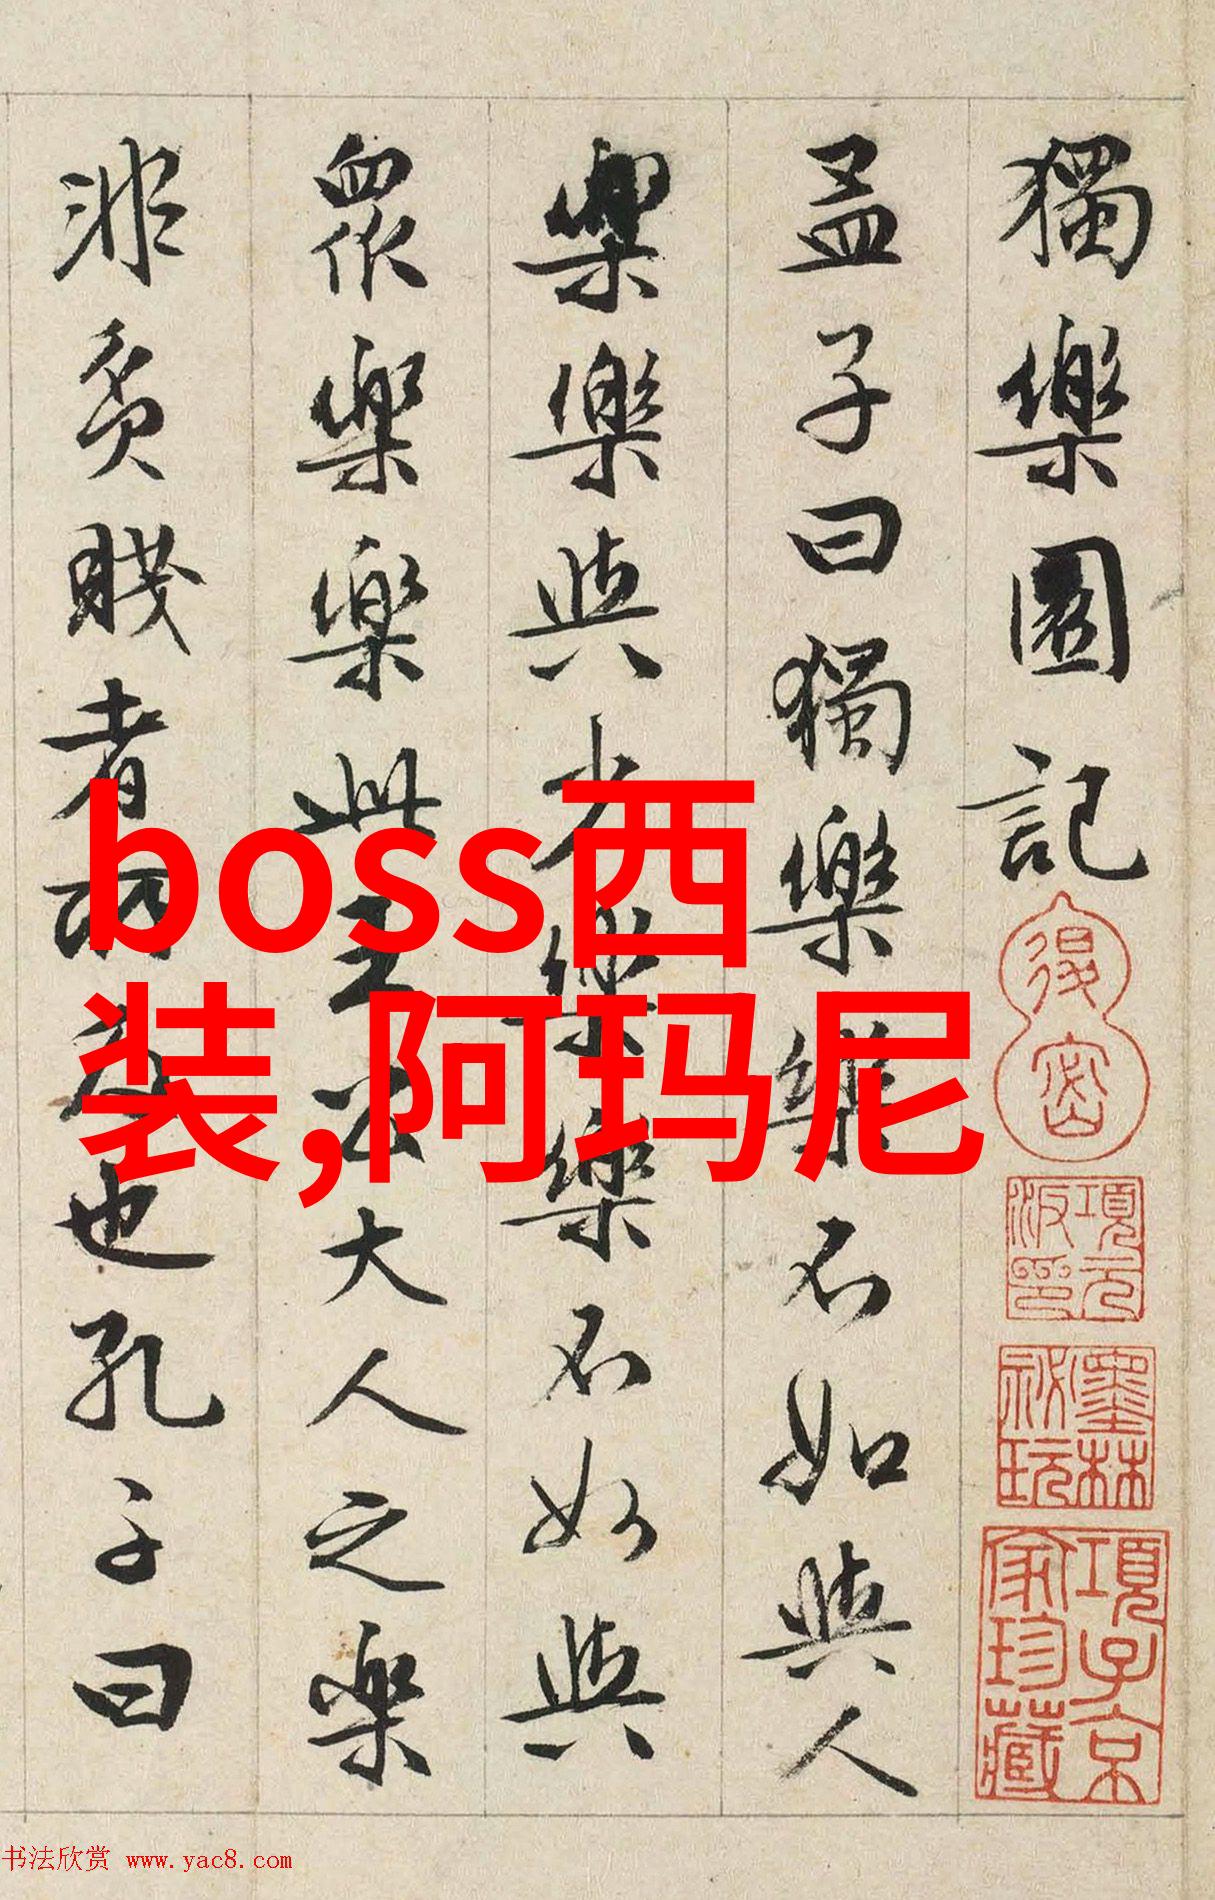 獨樂園記
孟子曰獨樂樂不如與人
樂樂與少樂樂不如與
衆樂樂此王公大人之樂
非貧賤者所及也孔子曰
boss西
装,阿玛尼
項元
汴印
墨林
祕玩
項子京
家珍藏
书法欣赏 www.yac8.com